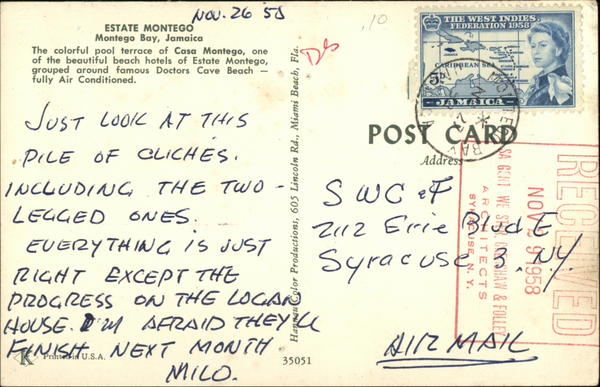 NOV. 26 58
.10
ESTATE MONTEGO
Montego Bay, Jamaica
The colorful pool terrace of Casa Montego, one
of the beautiful beach hotels of Estate Montego,
grouped around famous Doctors Cave Beach —
fully Air Conditioned.
JUST LOOK AT THIS
PILE OF CLICHÉS.
INCLUDING THE TWO-
LEGGED ONES.
EVERYTHING IS JUST
RIGHT EXCEPT THE
PROGRESS ON THE LOGAN
HOUSE. I'M AFRAID THEY'LL
FINISH NEXT MONTH
MILO.
K Printed in U.S.A.
35051
Color Productions, 605 Lincoln Rd., Miami Beach, Fla.
THE WEST INDIES
FEDERATION 1958
CARIBBEAN SEA
JAMAICA
POST CARD
Address
SWC & F
2112 Erie Blvd E
Syracuse 3, N.Y.
AIR MAIL
RECEIVED
NOV 29 1958
ARCHITECTS
SYRACUSE, N. Y.